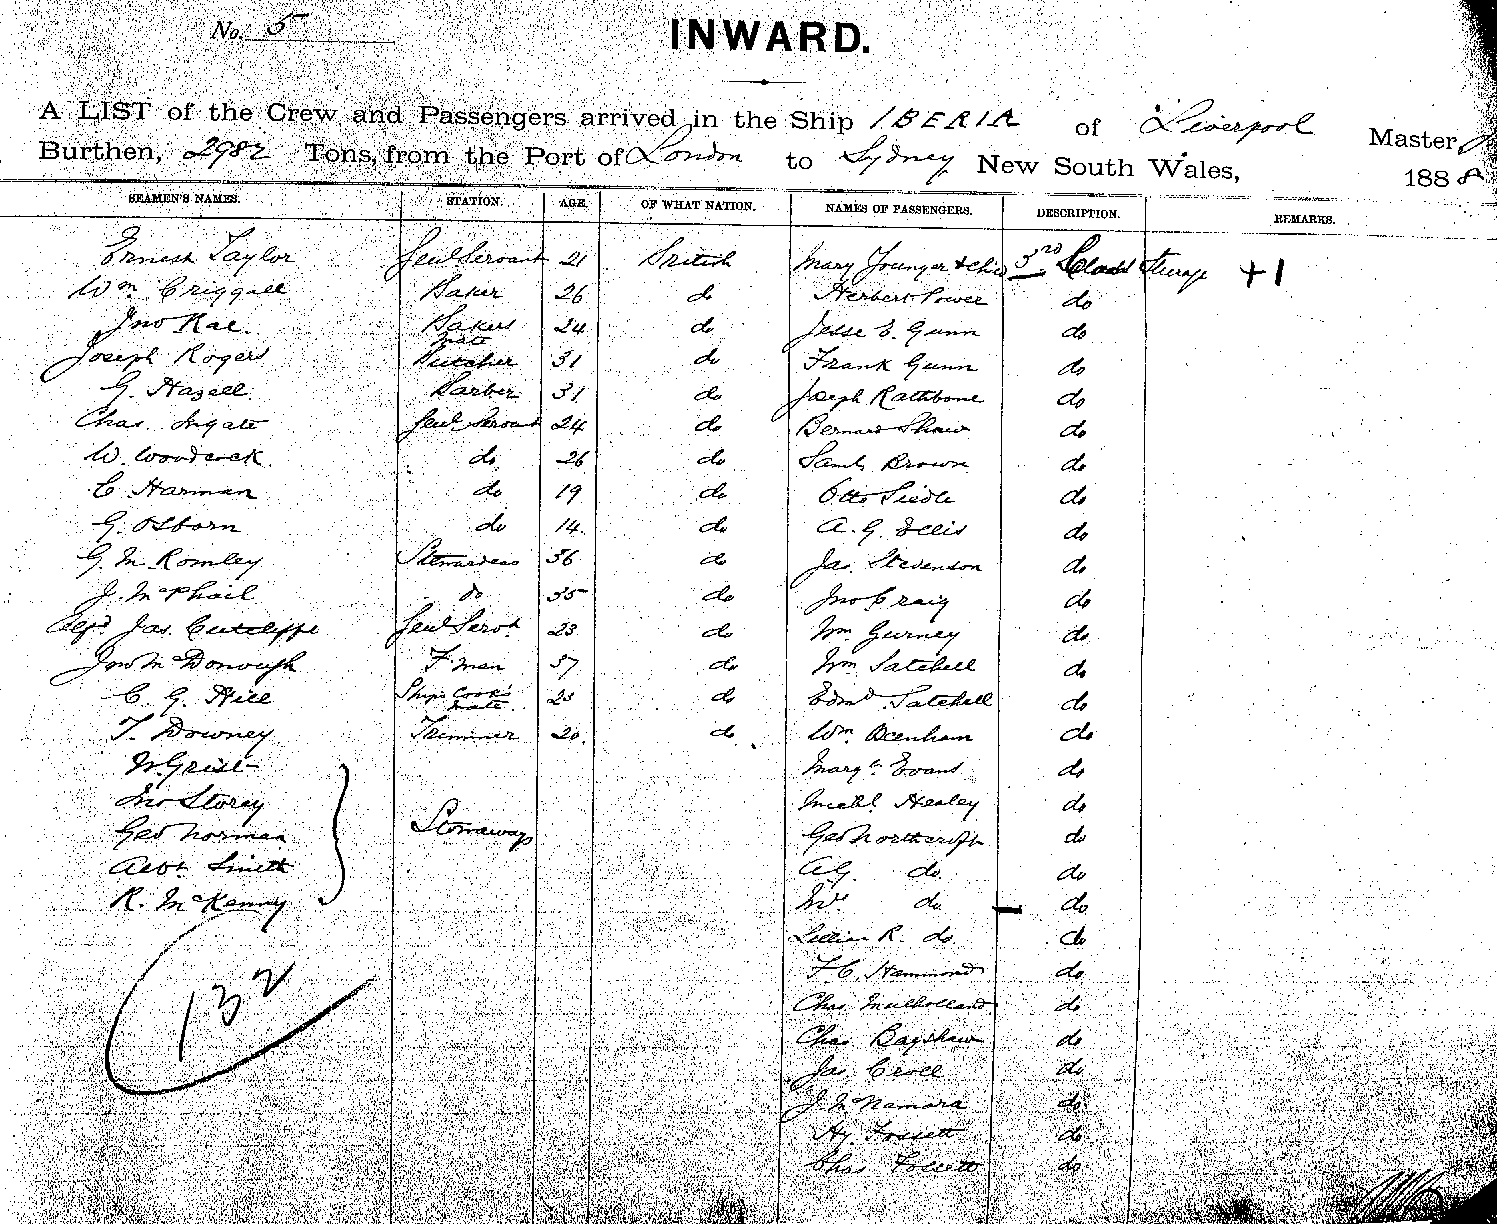 No. 5
INWARD.
A LIST of the Crew and Passengers arrived in the Ship IBERIA of Liverpool Master
Burthen, 2982 Tons, from the Port of London to Sydney New South Wales, 1888
SEAMEN'S NAMES. STATION. AGE. OF WHAT NATION. NAMES OF PASSENGERS. DESCRIPTION. REMARKS.
Ernest Taylor Genl Servant 21 British Mary Younger & Chid 3rd Class Steerage +1
Wm Criggall Baker 26 do Herbert Power do
Jno Rae Bakers mate 24 do Jesse E. Gunn do
Joseph Rogers Butcher 31 do Frank Gunn do
G. Hazell Barber 31 do Joseph Rathbone do
Chas. Ingate Genl Servant 24 do Bernard Shaw do
W. Woodcock do 26 do Saml Brown do
C Harman do 19 do Otto Siedle do
G. Osborn do 14 do A. G. Ellis do
G. M. Romley Stewardess 36 do Jas. Stevenson do
J. McPhail do 35 do Jno Craig do
Alfd Jas. Cutcliffe Genl Servt 23 do Wm Gurney do
Jno McDonough F'man 37 do Wm Satchell do
C. G. Hill Ships Cook's mate 23 do Edmd Satchell do
T. Downey Trimmer 20 do Wm Denham do
W. Grist Margt Evans do
Jno Storey Michl Healey do
Geo Norman Stowaways Geo Northcroft do
Albt Smith A.G. do do
R. McKenny do do
132 Lillian R. do do
F C. Hammond do
Chas Mulholland do
Chas Bagshaw do
Jas. Croll do
J. McNamara do
Hy Fossett do
Chas do